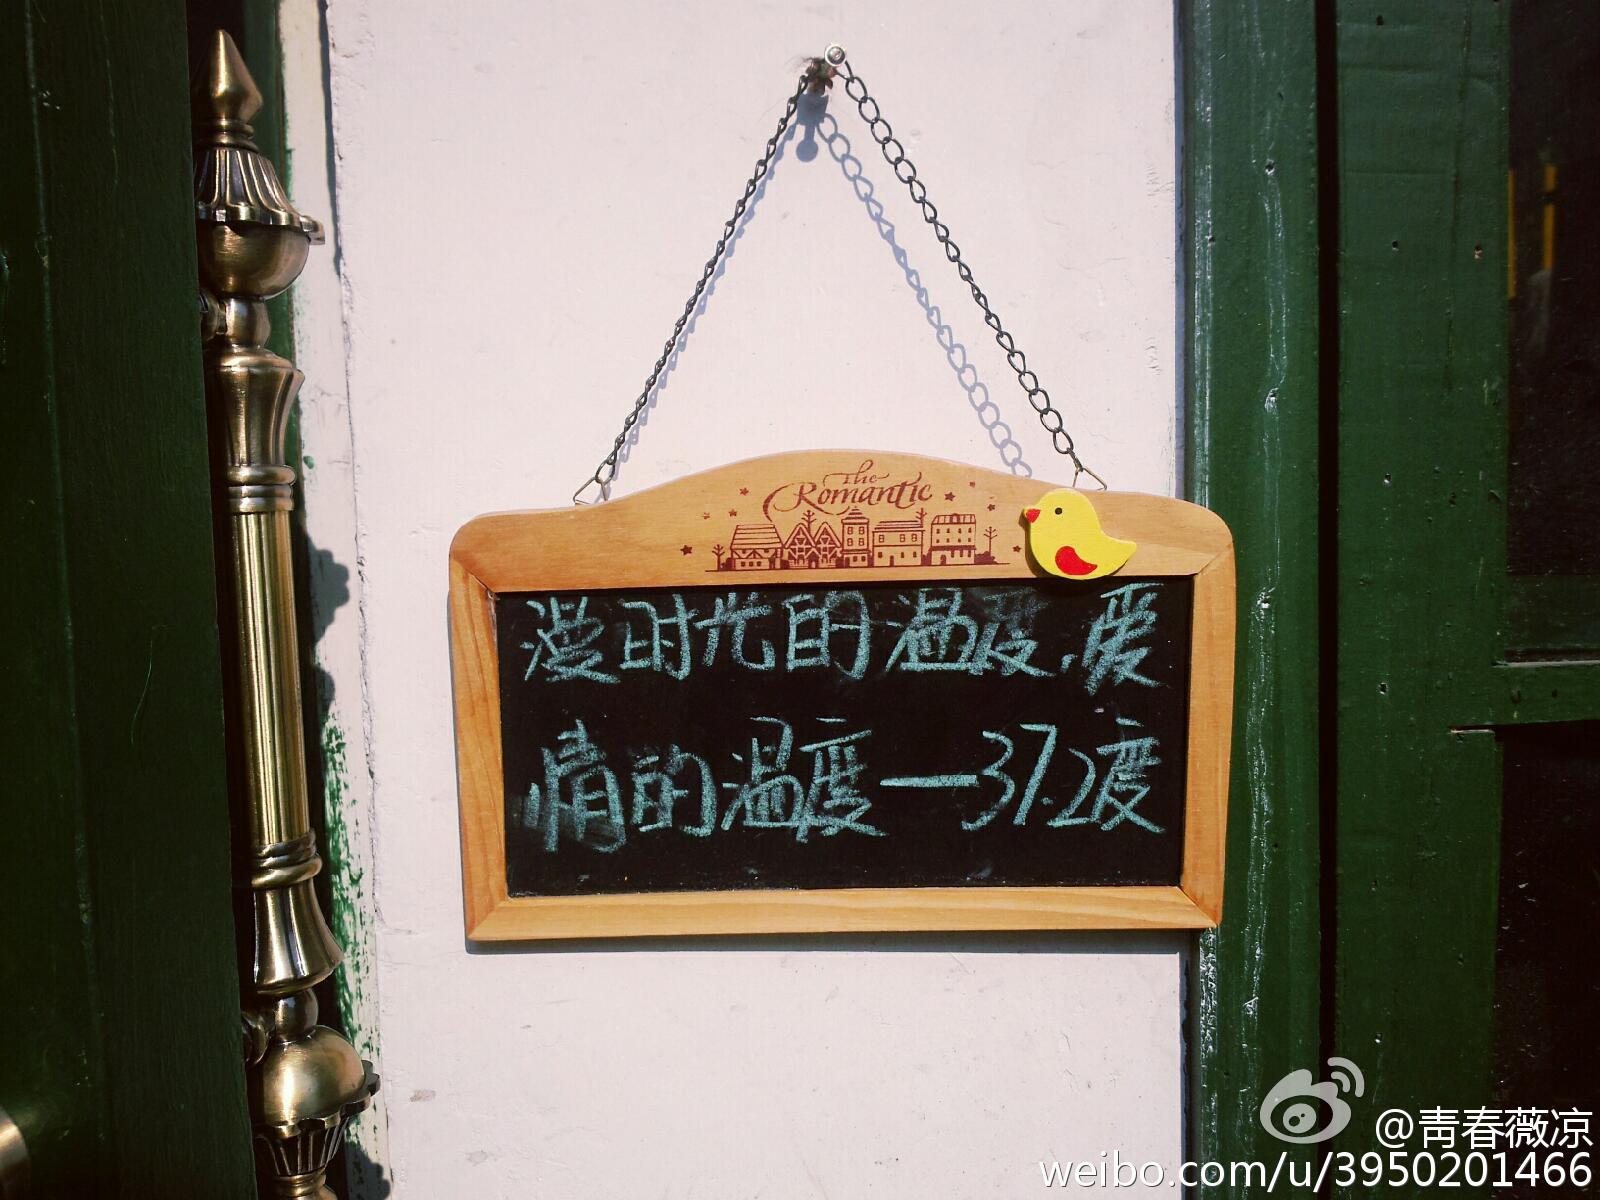 The
Romantic
漫时光的温度,爱
情的温度—37.2度
@青春薇凉
weibo.com/u/3950201466